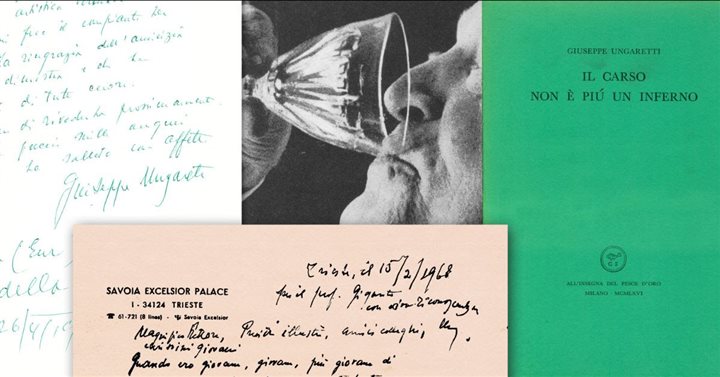 artistica
fece il compianto
la ringrazio dell'amicizia
e che ha
di tutto cuore.
di rivederla prossimamente.
mille auguri
La saluto con affetto
Giuseppe Ungaretti
(Eur
della
26/4/19
GIUSEPPE UNGARETTI
IL CARSO
NON È PIÚ UN INFERNO
ALL'INSEGNA DEL PESCE D'ORO
MILANO - MCMLXVI
SAVOIA EXCELSIOR PALACE
I - 34124 TRIESTE
☎ 61-721 (8 lines) - Savoia Excelsior
Trieste, il 15/2/1968
per il prof. Gigante
con viva riconoscenza
Magnifico Rettore, Presidi illustri, amici colleghi,
carissimi giovani
Quando ero giovane, giovane, più giovane di